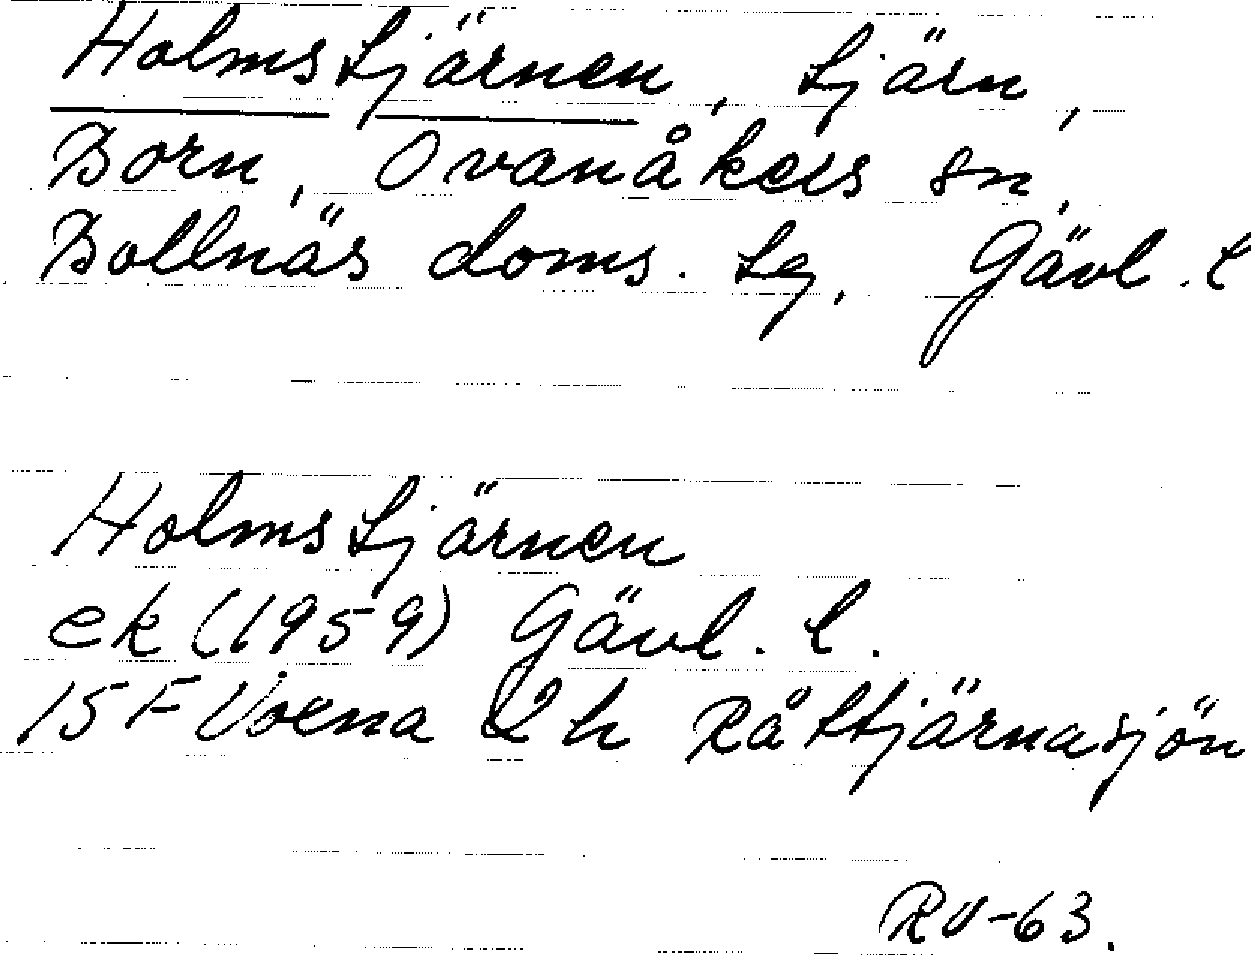 Holmstjärnen, tjärn,
Born, Ovanåkers sn,
Bollnäs doms. tg, Gävl. l
Holmstjärnen
ek (1959) Gävl. l.
15 F Voxna 2 h Råttjärnasjön
RV-63.